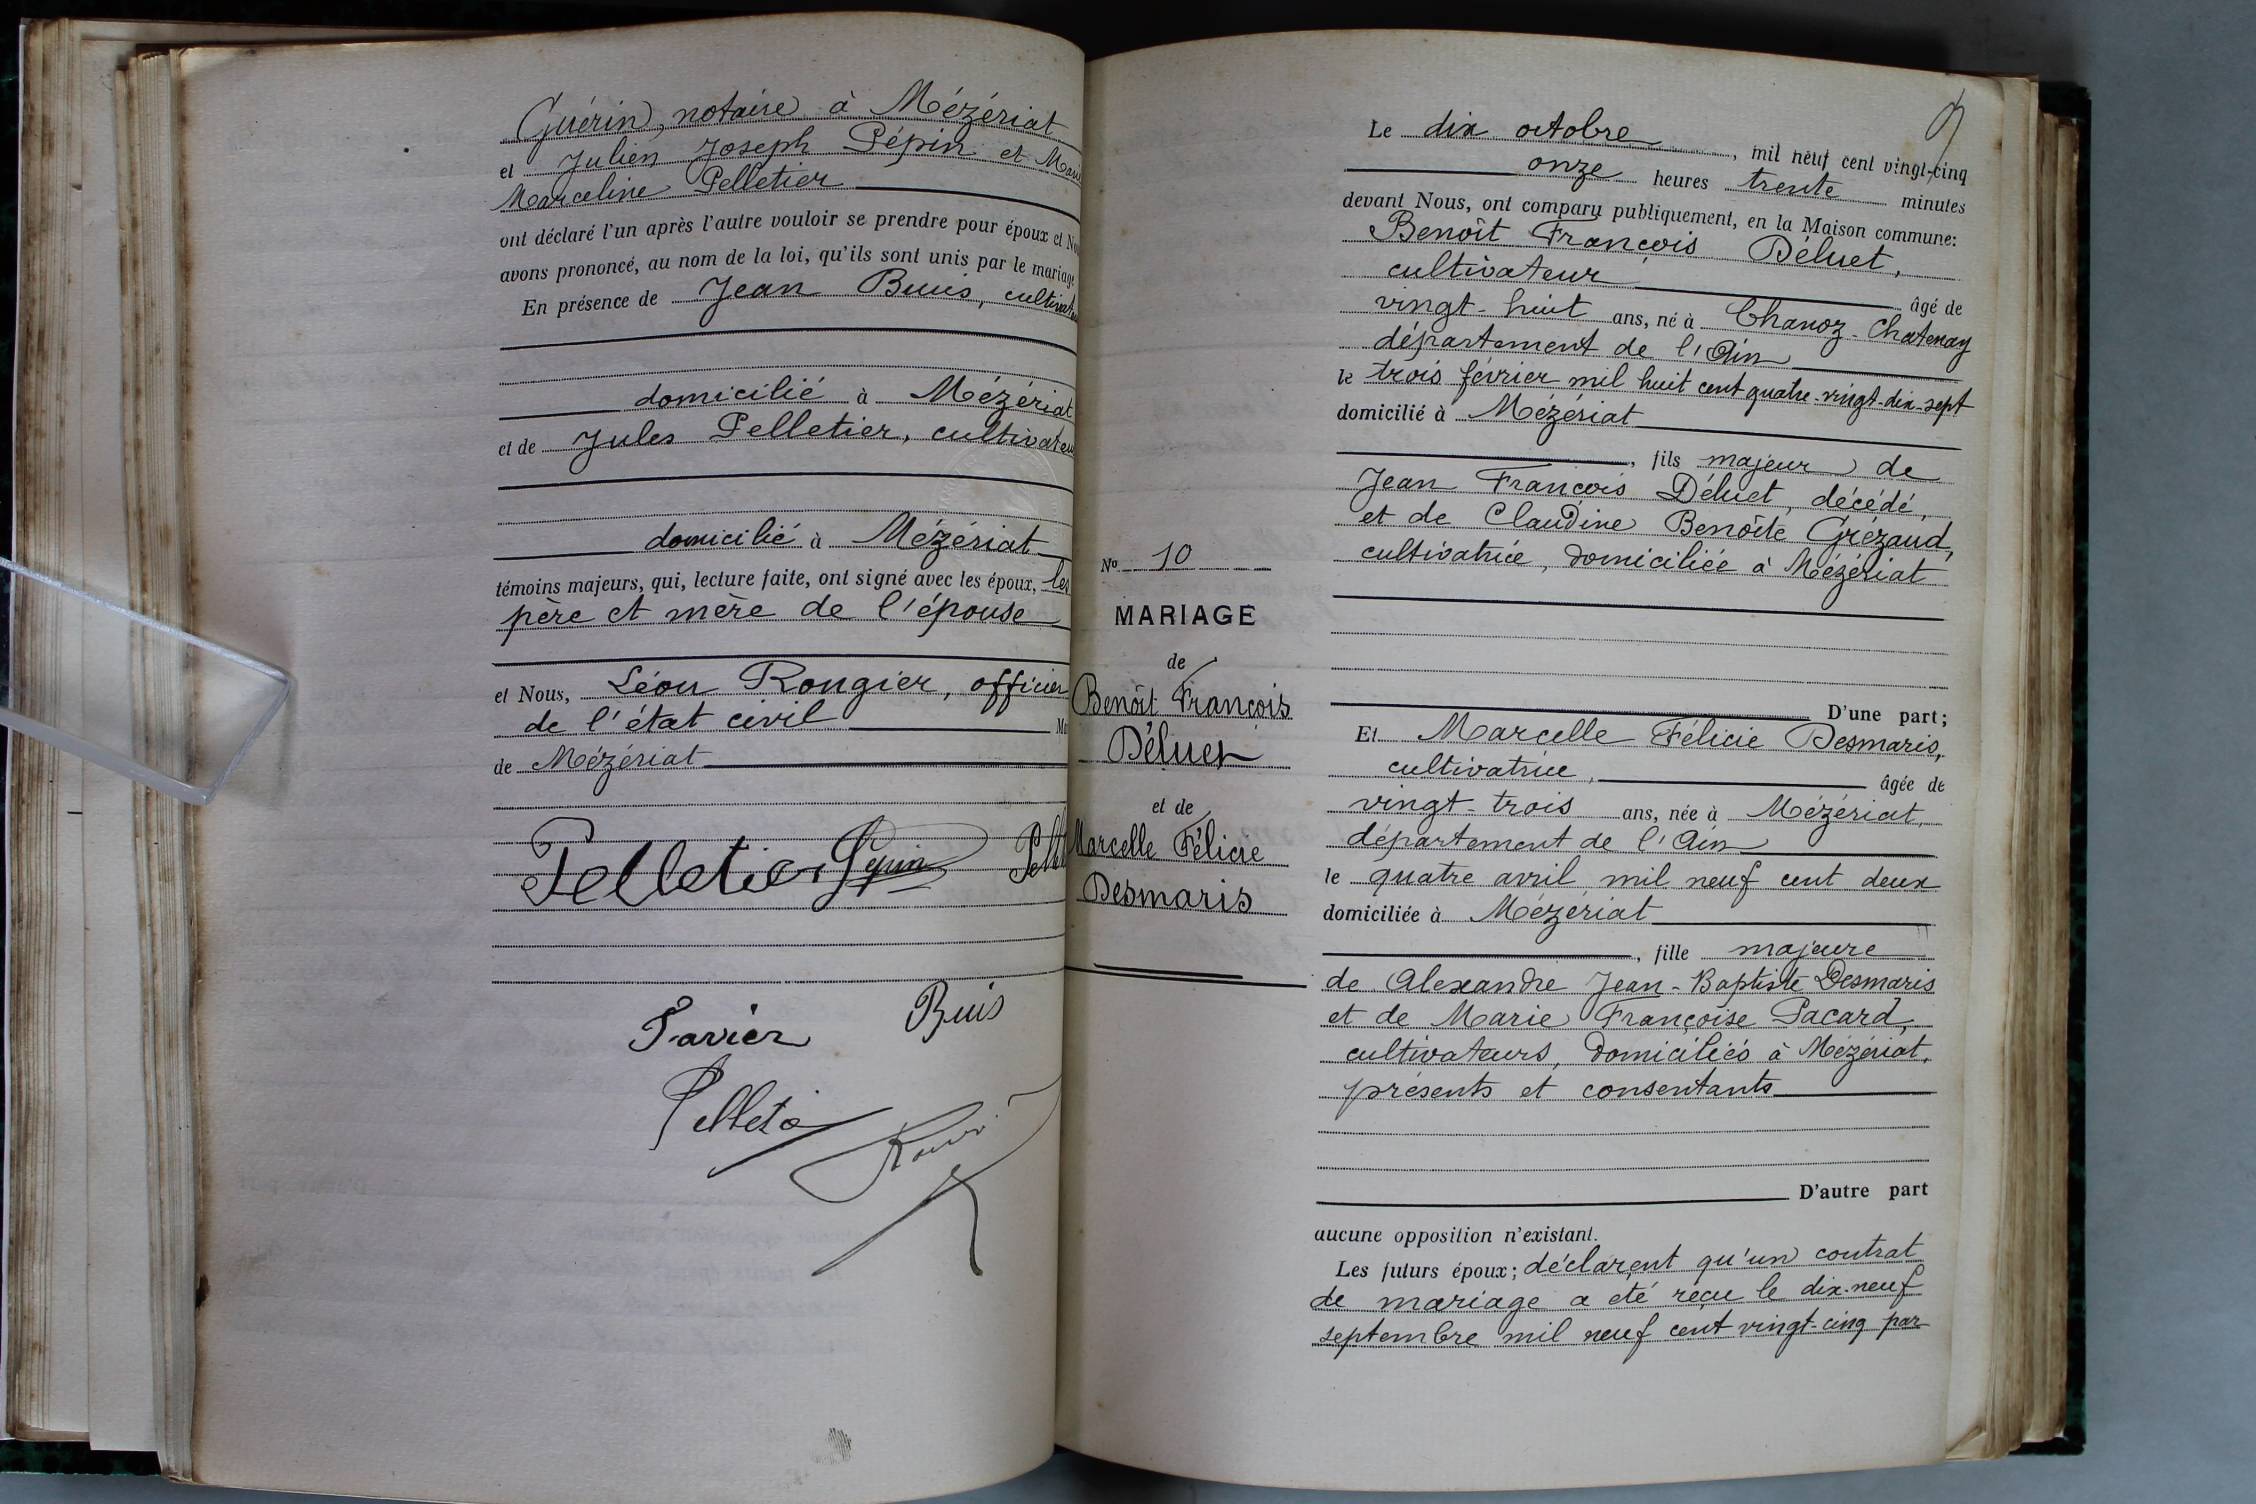 Guérin, notaire à Mézériat
et Julien Joseph Pépin et Marie
Marceline Pelletier
ont déclaré l'un après l'autre vouloir se prendre pour époux et Nous
avons prononcé, au nom de la loi, qu'ils sont unis par le mariage
En présence de Jean Buis, cultivateur
domicilié à Mézériat
et de Jules Pelletier, cultivateur
domicilié à Mézériat
témoins majeurs, qui, lecture faite, ont signé avec les époux, les
père et mère de l'épouse
et Nous, Léon Rongier, officier
de l'état civil
de Mézériat
Pelletier Pépin
Buis
No 10
MARIAGE
de
Benoît François
Déluet
et de
Marcelle Félicie
Desmaris
9
Le dix octobre, mil neuf cent vingt-cinq
onze heures trente minutes
devant Nous, ont comparu publiquement, en la Maison commune:
Benoît François Déluet,
cultivateur âgé de
vingt-huit ans, né à Chanoz-Chatenay
département de l'Ain
le trois février mil huit cent quatre-vingt-dix-sept
domicilié à Mézériat
, fils majeur de
Jean François Déluet, décédé,
et de Claudine Benoîte Grézaud,
cultivatrice, domiciliée à Mézériat
D'une part;
Et Marcelle Félicie Desmaris,
cultivatrice, âgée de
vingt-trois ans, née à Mézériat,
département de l'Ain
le quatre avril mil neuf cent deux
domiciliée à Mézériat
, fille majeure
de Alexandre Jean-Baptiste Desmaris
et de Marie Françoise Pacard,
cultivateurs, domiciliés à Mézériat,
présents et consentants
D'autre part
aucune opposition n'existant.
Les futurs époux; déclarent qu'un contrat
de mariage a été reçu le dix-neuf
septembre mil neuf cent vingt-cinq par